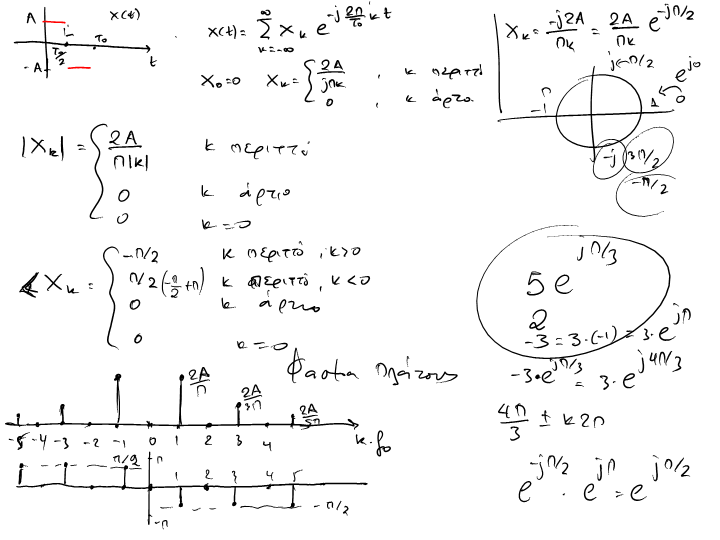 A x(t)
T₀/2 T₀
-A t
x(t) = ∑_{k=-∞}^{∞} X_k e^{-j 2π/T₀ k t}
X₀=0 X_k = { 2A/jπk , k περιττό
0 , k άρτιο
X_k = -j2A/πk = 2A/πk e^{-jπ/2}
j π/2
e^{j0}
-1 π 1 0
-j 3π/2
-π/2
|X_k| = { 2A/π|k| k περιττό
0 k άρτιο
0 k=0
∡X_k = { -π/2 k περιττό, k>0
π/2 (-π/2+π) k περιττό, k<0
0 k άρτιο
0 k=0
5 e^{jπ/3}
2
-3 = 3·(-1) = 3·e^{jπ}
-3·e^{jπ/3} = 3·e^{j4π/3}
4π/3 ± k2π
e^{-jπ/2} · e^{jπ} = e^{jπ/2}
Φασμα πλάτους
2A/π 2A/3π 2A/5π
-5 -4 -3 -2 -1 0 1 2 3 4 k·f₀
π/2 π
1 2 3 4 5
-π/2
-π